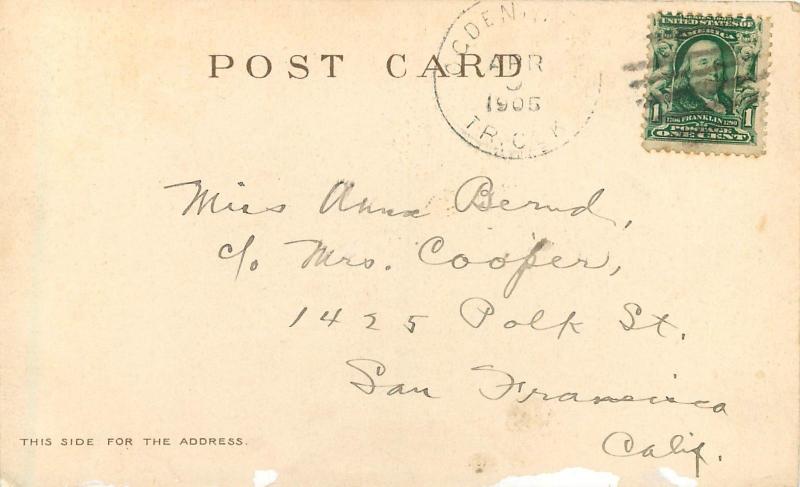 POST CARD
APR
1905
UNITED STATES OF
AMERICA
1 1706 FRANKLIN 1790 1
POSTAGE
ONE CENT
Miss Anna Bernd,
c/o Mrs. Cooper,
1425 Polk St.
San Francisco
Calif.
THIS SIDE FOR THE ADDRESS.